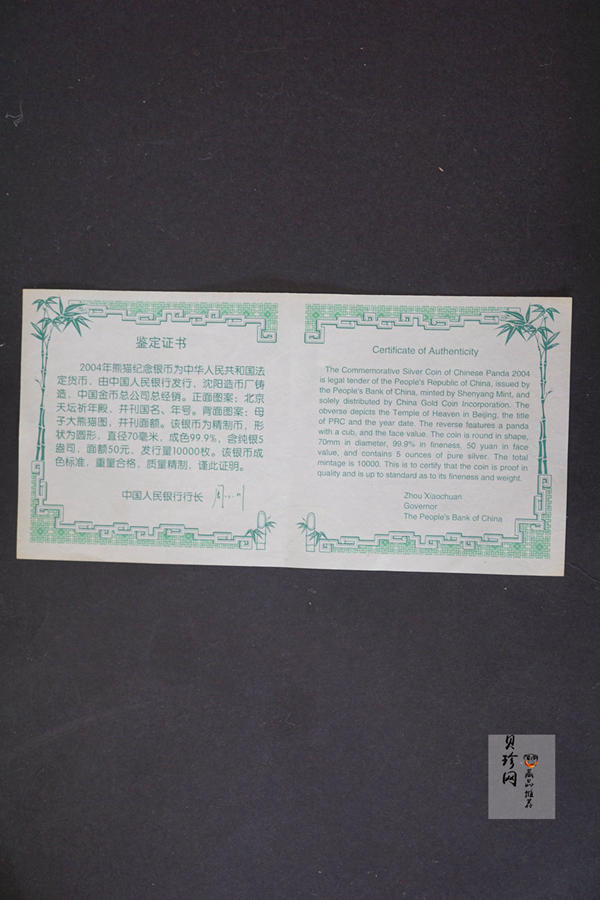 鉴定证书
2004年熊猫纪念银币为中华人民共和国法
定货币，由中国人民银行发行，沈阳造币厂铸
造，中国金币总公司总经销。正面图案：北京
天坛祈年殿，并刊国名、年号。背面图案：母
子大熊猫图，并刊面额。该银币为精制币，形
状为圆形，直径70毫米，成色99.9%，含纯银5
盎司，面额50元，发行量10000枚。该银币成
色标准，重量合格，质量精制，谨此证明。
中国人民银行行长
Certificate of Authenticity
The Commemorative Silver Coin of Chinese Panda 2004
is legal tender of the People's Republic of China, issued by
the People's Bank of China, minted by Shenyang Mint, and
solely distributed by China Gold Coin Incorporation. The
obverse depicts the Temple of Heaven in Beijing, the title
of PRC and the year date. The reverse features a panda
with a cub, and the face value. The coin is round in shape,
70mm in diameter, 99.9% in fineness, 50 yuan in face
value, and contains 5 ounces of pure silver. The total
mintage is 10000. This is to certify that the coin is proof in
quality and is up to standard as to its fineness and weight.
Zhou Xiaochuan
Governor
The People's Bank of China
贝珍网
藏品推荐